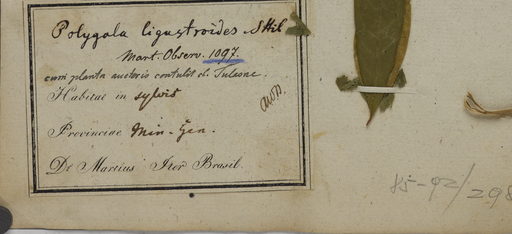 Polygala ligustroides SHil
Mart. Observ. 1097.
cum planta auctoris contulit cl. Tulasne.
Habitat in sylvis
Provinciae Min-Gen.
Dr Martius Iter Brasil.
85-92/298